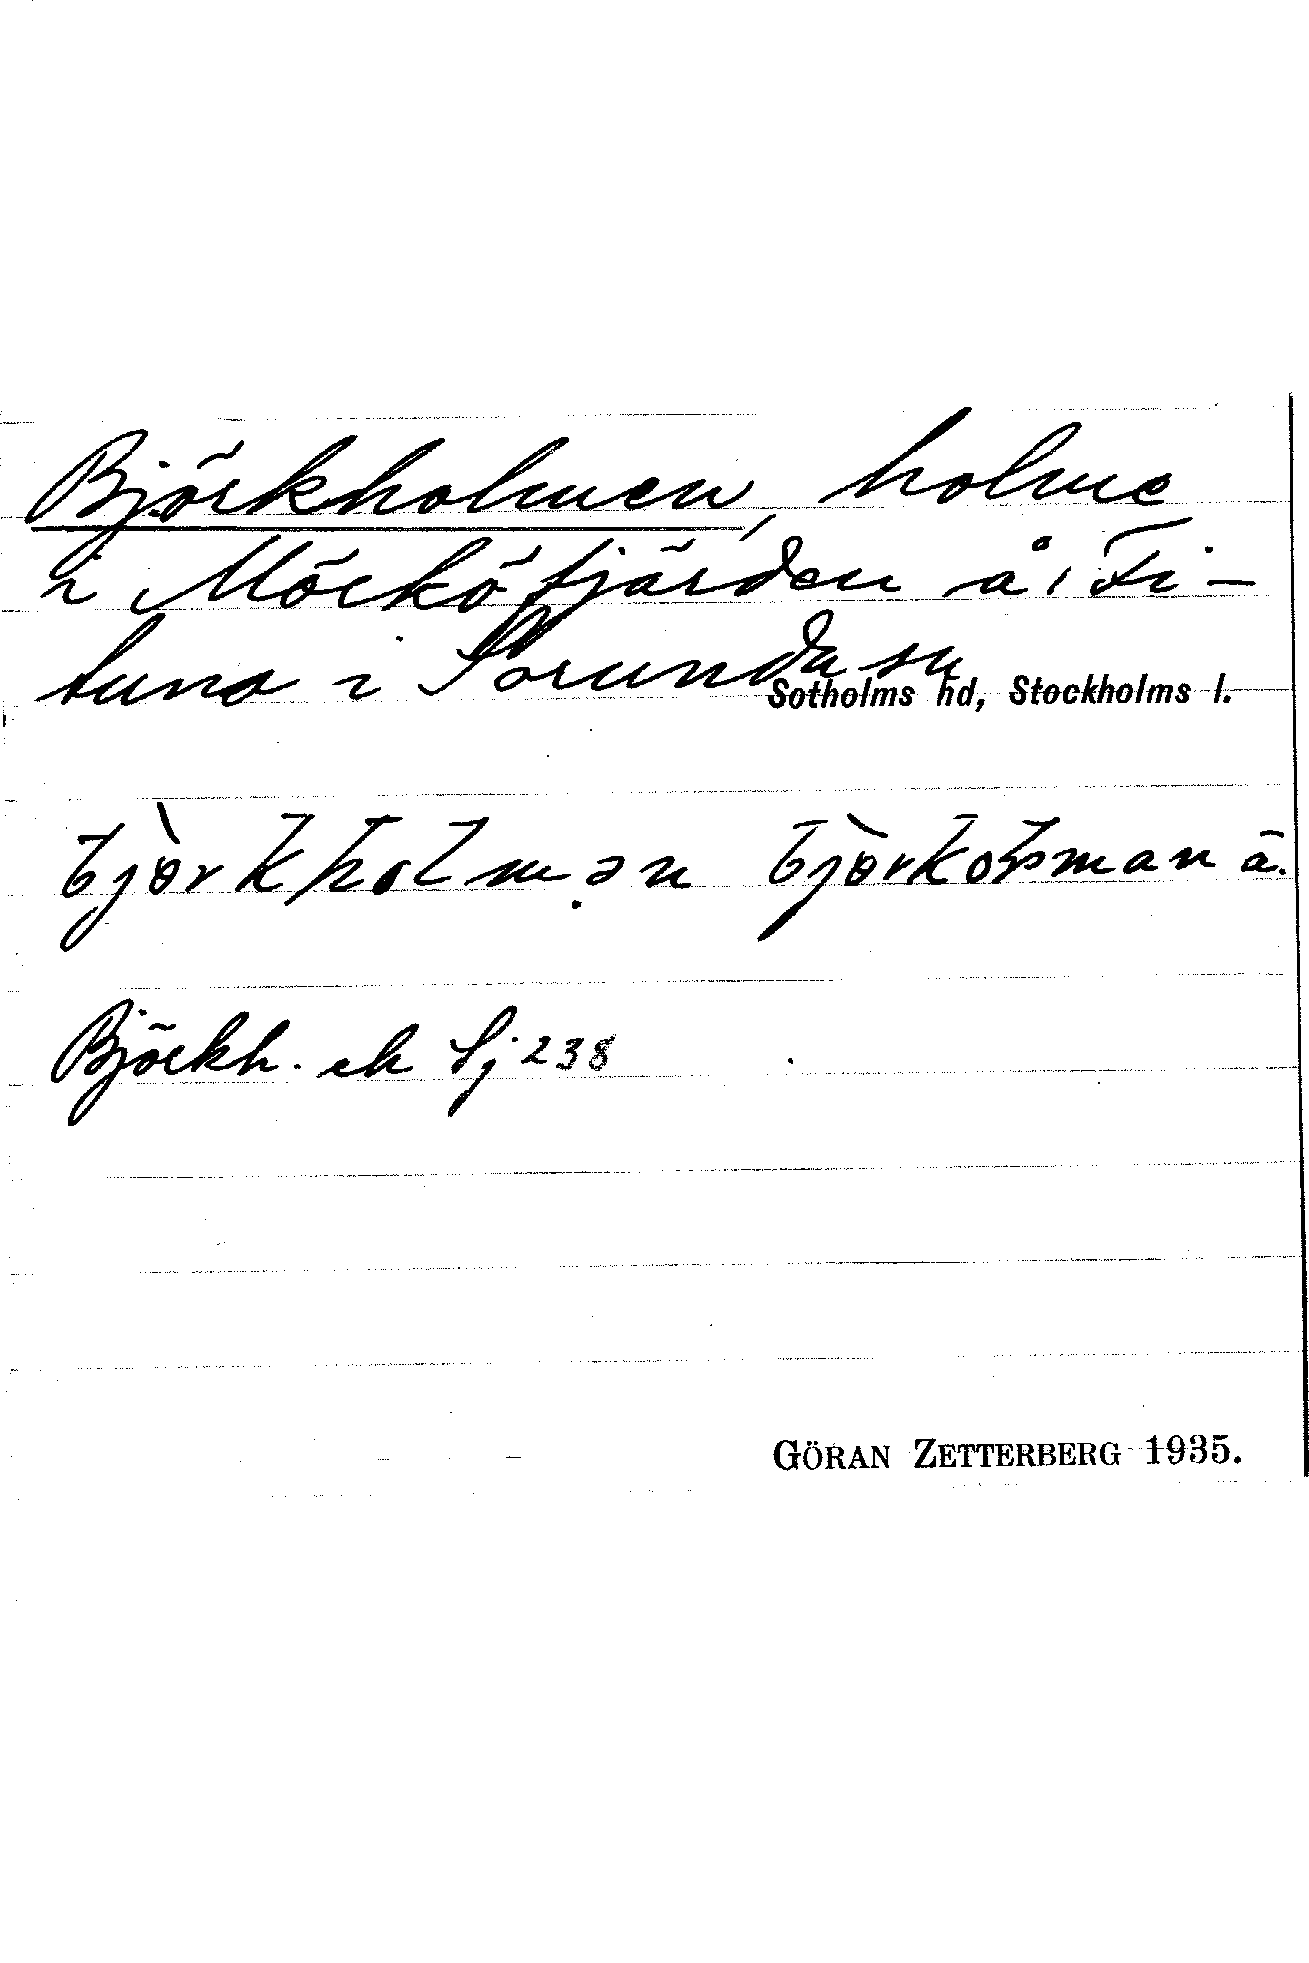 Björkholmen, holme
i Mörköfjärden å Fi-
tuna i Sorunda sn
Sotholms hd, Stockholms l.
bjòrkholmən bjòrkoɫman ä.
Björkh. ek Sj 238
GÖRAN ZETTERBERG 1935.